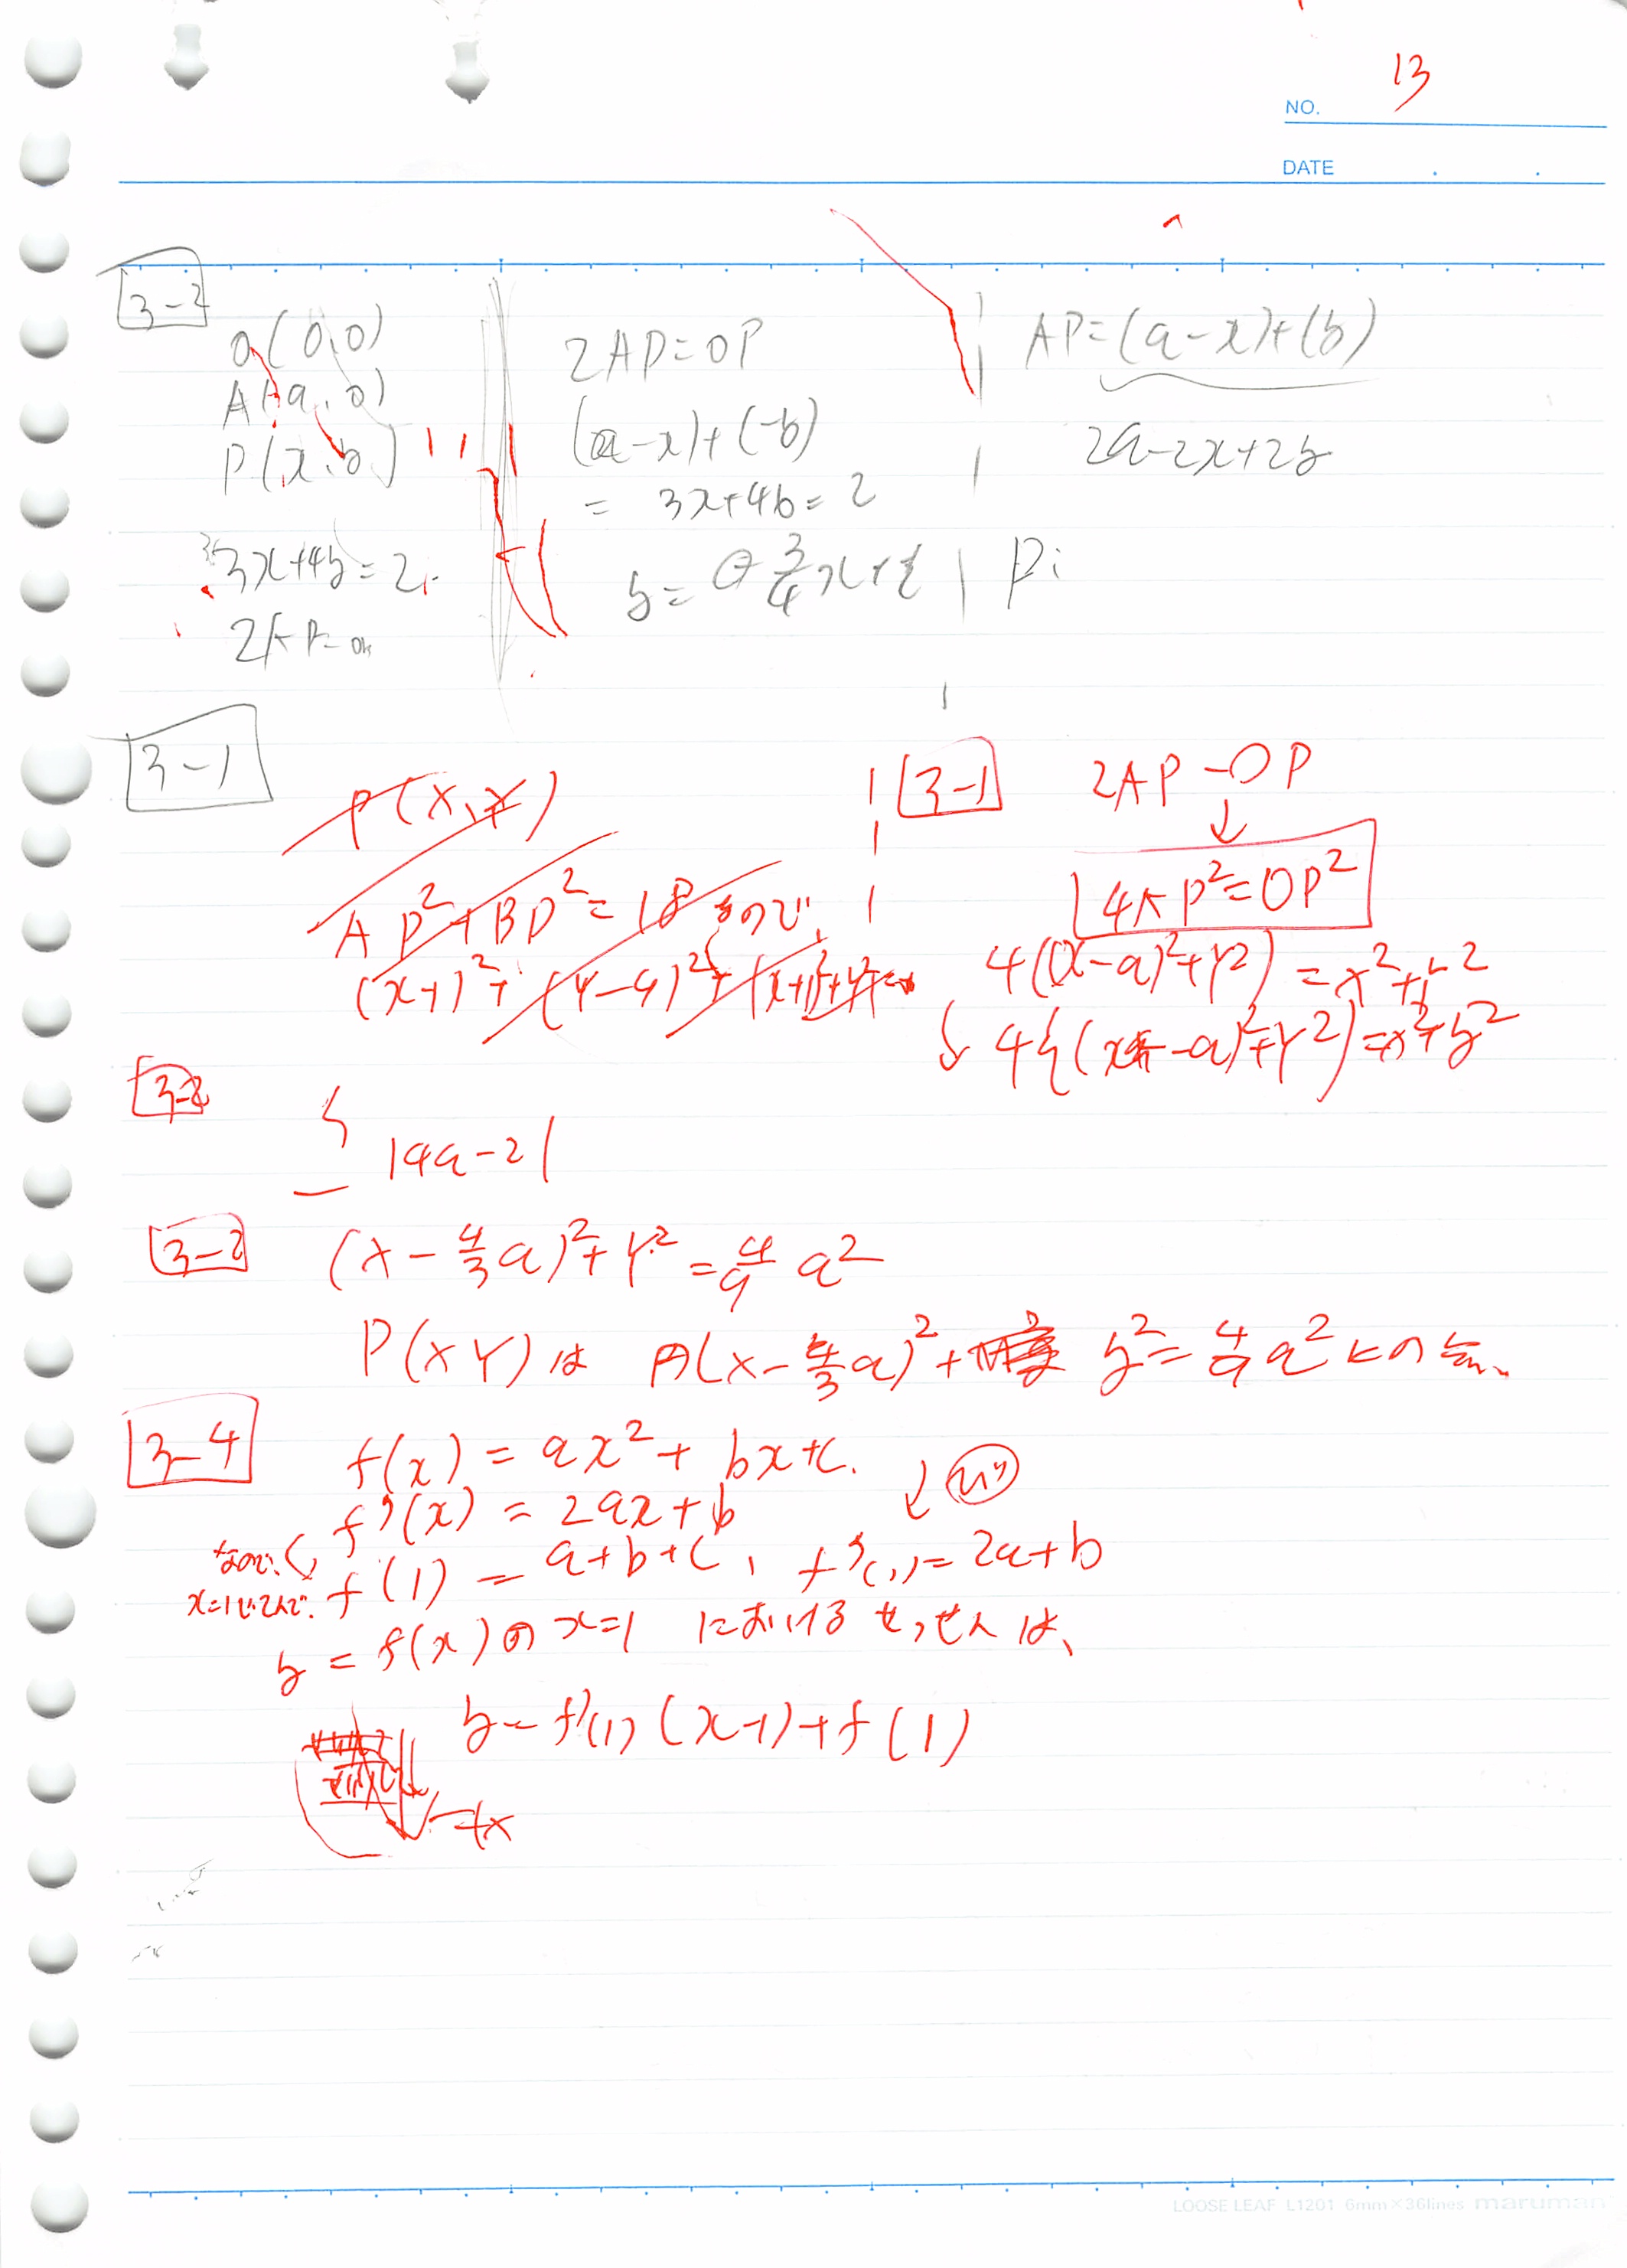 13
NO.
DATE
3-2
O(0,0)
A(a,0)
P(x,b)
3x+4y=2
2AP=
2AP=OP
(a-x)+(-b)
= 3x+4b=2
AP=(a-x)+(b)
2a-2x+2b
P:
3-1
P(X,Y)
AP²+BP²=18 なので、
3-1
2AP=OP
↓
4AP²=OP²
4((x-a)²+Y²)=x²+y²
↓ 4{(x-a)²+Y²)=x²+y²
3-2
|4a-2|
3-2
(x-4/3a)²+Y²=4/9 a²
P(XY)は 円(x-4/3a)²+ y²=4/9a²上の
3-4
f(x)=ax²+bx+c.
f'(x)=2ax+b
なので、
x=1
f(1)=a+b+c, f'(1)=2a+b
y=f(x)のx=1 におけるせっせんは、
y=f'(1)(x-1)+f(1)
LOOSE LEAF L1201 6mm×36lines maruman